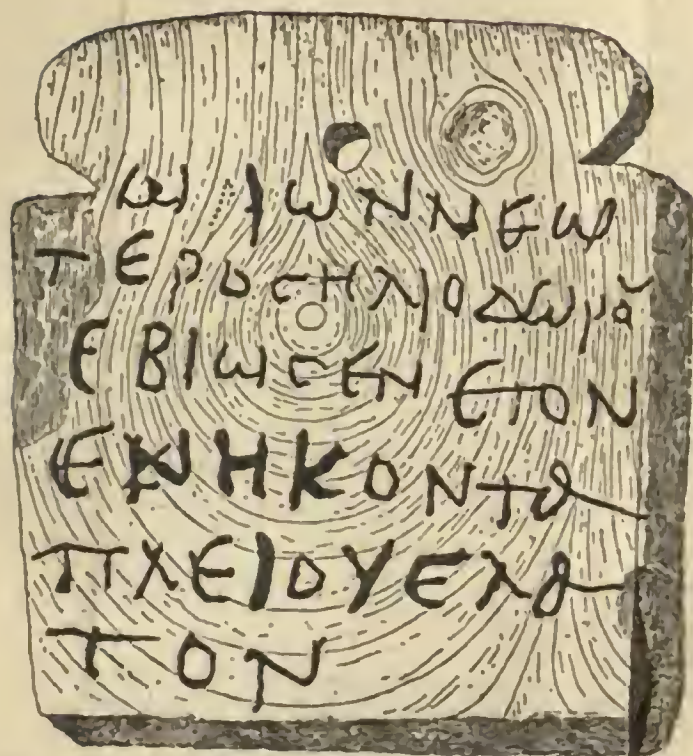 ωΡΙωΝΝΕω
ΤΕΡΟCΗΛΙΟΔωΡα
ΕΒΙωCΕΝΕΤΟΝ
ΕΝΗΚΟΝΤα
ΠΛΕΙΟΥΕΛα
ΤΟΝ